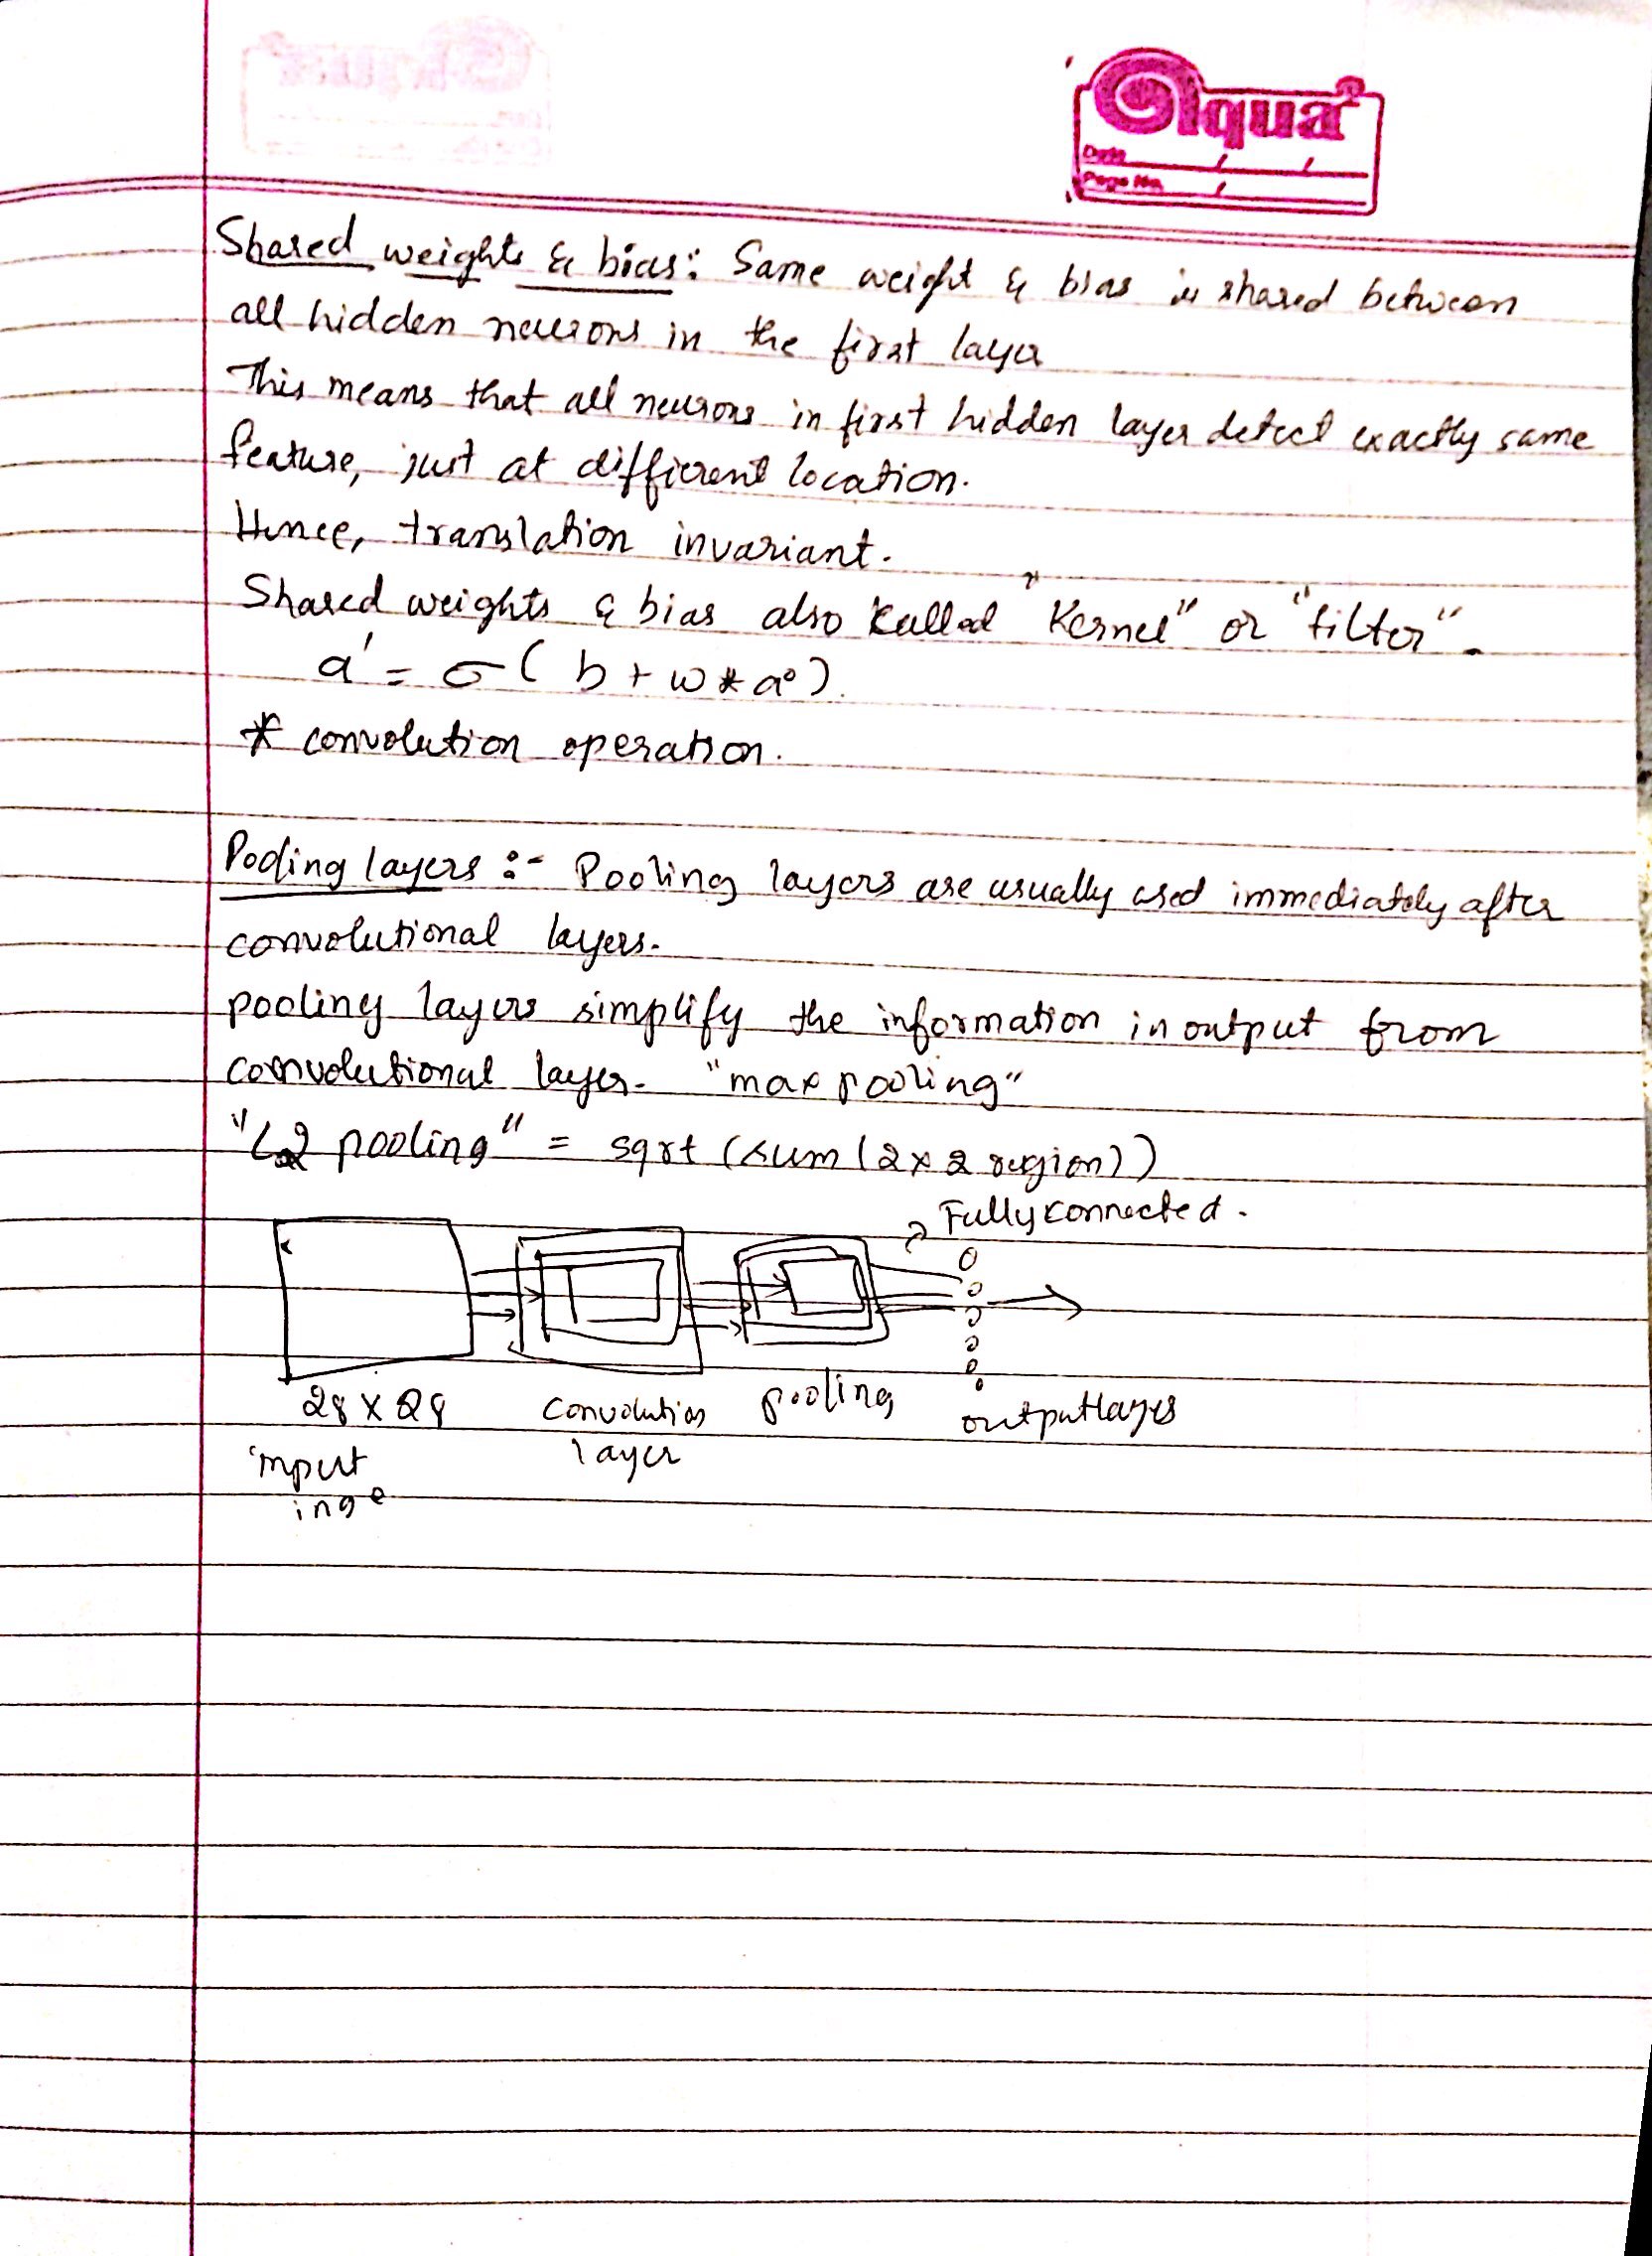 Aqua
Date / /
Page No. /
Shared weights & bias: Same weight & bias is shared between
all hidden neurons in the first layer
This means that all neurons in first hidden layer detect exactly same
feature, just at different location.
Hence, translation invariant.
Shared weights & bias also called "Kernel" or "filter".
a' = σ ( b + w * a⁰ ).
* convolution operation.
Pooling layers :- Pooling layers are usually used immediately after
convolutional layers.
pooling layers simplify the information in output from
convolutional layer. "max pooling"
"L2 pooling" = sqrt (sum (2x2 region))
Fully connected.
28 x 28 convolution pooling output layers
input layer